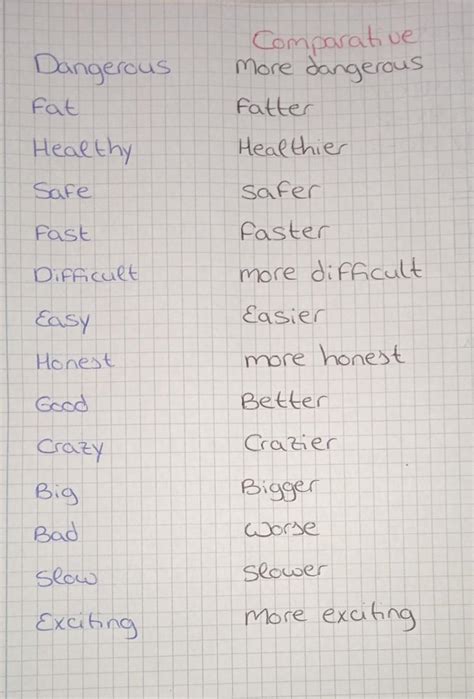 Comparative
Dangerous more dangerous
Fat Fatter
Healthy Healthier
Safe safer
Fast faster
Difficult more difficult
Easy Easier
Honest more honest
Good Better
Crazy Crazier
Big Bigger
Bad Worse
Slow Slower
Exciting more exciting